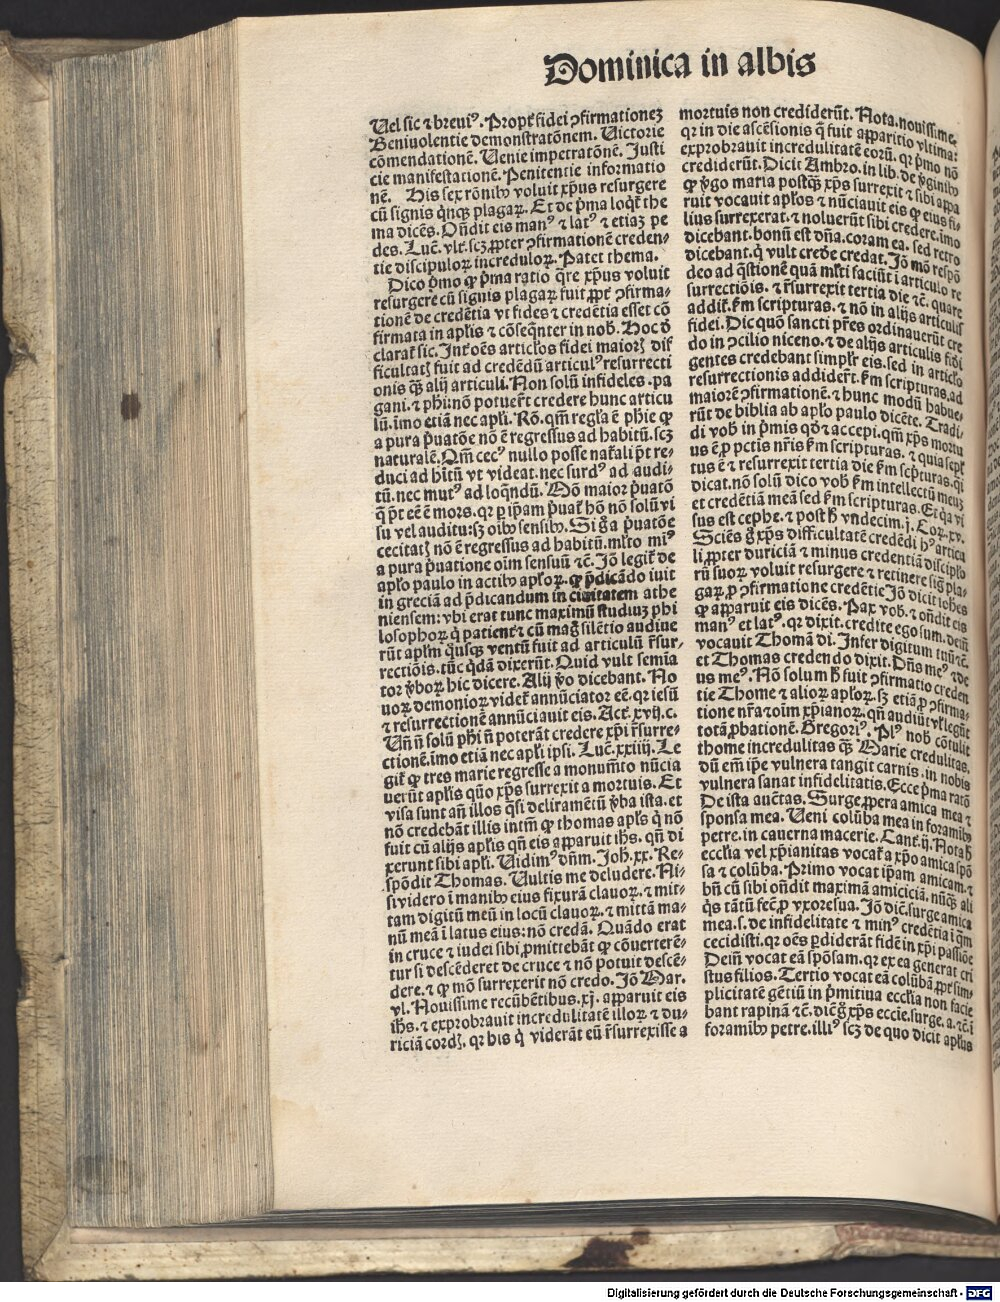 Dominica in albis
Uel sic ⁊ breuiꝰ. Propt̃ fidei ꝯfirmationeꝫ
Beniuolentie demonstratõnem. Uictorie
cõmendationẽ. Uenie impetratõnẽ. Justi
cie manifestationẽ. Penitentie informatio
nẽ. His sex rõnibꝰ voluit xp̃us resurgere
cũ signis q̃nqꝫ plagaꝝ. Et de p̃ma loq̃t̃ the
ma dicẽs. Oñdit eis manꝰ ⁊ latꝰ ⁊ etiaꝫ pe
des. Luc̃. vlt̃. scꝫ ꝓpter ꝯfirmationẽ creden-
tie discipuloꝝ increduloꝝ. Patet thema.
Dico p̃mo ꝙ p̃ma ratio q̃re xp̃us voluit
resurgere cũ signis plagaꝝ fuit ꝓpt̃ ꝯfirma-
tionẽ de credẽtia vt fides ⁊ credẽtia esset cõ
firmata in apl̃is ⁊ cõseq̃nter in nob̃. Hoc d̃
clarat̃ sic. Int̃ oẽs articl̃os fidei maiorꝫ dif
ficultatꝫ fuit ad credẽdũ articulꝰ resurrecti
onis qꝫ alij articuli. Non solũ infideles. pa
gani. ⁊ phi: nõ potuer̃t credere hunc articu
lũ. imo etiã nec apl̃i. Rõ. qm̃ regl̃a ẽ phie ꝙ
a pura p̃uatõe nõ ẽ regressus ad habitũ. scꝫ
naturalẽ. Qm̃ cecꝰ nullo posse nat̃ali p̃t re-
duci ad hĩtũ vt videat. nec surdꝰ ad audi-
tũ. nec mutꝰ ad loq̃ndũ. Mõ maior p̃uatõ
q̃ p̃t eẽ ẽ mors. qꝛ ꝑ ip̃am p̃uat̃ hõ nõ solũ vi
su vel auditu: sꝫ oĩbꝰ sensibꝰ. Si g̃ a p̃uatõe
cecitatꝫ nõ ẽ regressus ad habitũ. ml̃to miꝰ
a pura p̃uatione oĩm sensuũ ⁊c̃. Jõ legit̃ de
apl̃o paulo in actibꝰ apl̃oꝝ. ꝙ p̃dicãdo iuit
in greciã ad p̃dicandum in ciuitatem athe
niensem: vbi erat tunc maximũ studiuꝫ phi
losophoꝝ q̃ patient̃ ⁊ cũ mag̃ silẽtio audiue
rũt apl̃m q̃usqꝫ ventũ fuit ad articulũ r̃sur-
rectiõis. tũc q̃dã dixerũt. Quid vult semĩa
tor v̓boꝝ hic dicere. Alij v̓o dicebant. No
uoꝝ demonioꝝ videt̃ annũciator eẽ. qꝛ iesũ
⁊ resurrectionẽ annũciauit eis. Act̃. xvij. c.
Uñ ñ solũ phi ñ poterãt credere xp̃i r̃surre-
ctionẽ. imo etiã nec apl̃i ipsi. Luc̃. xxiiij. Le
git̃ ꝙ tres marie regresse a monum̃to nũcia
uerũt apl̃is quõ xp̃s surrexit a mortuis. Et
visa sunt añ illos q̃si deliramẽtũ v̓ba ista. et
nõ credebãt illis intm̃ ꝙ thomas apl̃s q̃ nõ
fuit cũ alijs apl̃is qñ eis apparuit ih̃s. qñ di
xerunt sibi apl̃i. Uidimꝰ dñm. Joh̃. xx. Re-
spõdit Thomas. Uultis me deludere. Ni-
si videro ĩ manibꝰ eius fixurã clauoꝝ. ⁊ mit-
tam digitũ meũ in locũ clauoꝝ. ⁊ mittã ma-
nũ meã ĩ latus eius: nõ credã. Quãdo erat
in cruce ⁊ iudei sibi ꝓmittebãt ꝙ cõuerterẽ-
tur si descẽderet de cruce ⁊ nõ potuit descẽ-
dere. ⁊ ꝙ mõ surrexerit nõ credo. Jõ Mar.
vl. Nouissime recũbẽtibus. xj. apparuit eis
ih̃s. ⁊ exprobrauit incredulitatẽ illoꝝ ⁊ du-
riciã cordꝫ. qꝛ his q̃ viderãt eũ r̃surrexisse a
mortuis non crediderũt. Nota. nouissime.
qꝛ in die ascẽsionis q̃ fuit apparitio vltima:
exprobrauit incredulitatẽ eorũ. qꝛ p̃mo nõ
crediderũt. Dicit Ambro. in lib. de v̓ginibꝰ
ꝙ v̓go maria postꝙ xp̃s surrexit ⁊ sibi appa
ruit vocauit apl̃os ⁊ nũciauit eis ꝙ eius fi-
lius surrexerat. ⁊ noluerũt sibi credere. imo
dicebant. bonũ est dña. coram ea. sed retro
dicebant. q̃ vult crede credat. Jõ mõ respõ
deo ad q̃stionẽ quã ml̃ti faciũt ĩ articulo re
surrectiõis. ⁊ r̃surrexit tertia die ⁊c̃. quare
addit̃. ẽm scripturas. ⁊ nõ in alijs articulis
fidei. Dic quõ sancti pr̃es ordinauerũt cre
do in ꝯcilio niceno. ⁊ de alijs articulis fidi
gentes credebant simpl̃r eis. sed in articl̃o
resurrectionis addider̃t. ẽm scripturas. ad
maiorẽ ꝯfirmationẽ. ⁊ hunc modũ habue-
rũt de biblia ab apl̃o paulo dicẽte. Tradi-
di vob̃ in p̃mis qð ⁊ accepi. qm̃ xp̃s mortu
us ẽ ꝓ pctĩs nr̃is ẽm scripturas. ⁊ quia sepl̃
tus ẽ ⁊ resurrexit tertia die ẽm scp̃turas. qi
dicat. nõ solũ dico vob̃ ẽm intellectũ meuꝫ
et credẽtiã meã sed ẽm scripturas. Et q̃a vi
sus est cephe. ⁊ post h̃ vndecim. j. Coꝝ. xv.
Sciẽs g̃ xp̃s difficultatẽ credẽdi hꝰ articu
li ꝓpter duriciã ⁊ minus credentiã discipl̃o
rũ suoꝝ voluit resurgere ⁊ retinere sig̃ pla-
gaꝝ ꝓ ꝯfirmatione credẽtie Jõ dicit iohẽs
ꝙ apparuit eis dicẽs. Pax vob̃. ⁊ oñdit eis
manꝰ et latꝰ. qꝛ dixit. credite ego sum. deiñ
vocauit Thomã di. Infer digitum tuũ ⁊c̃.
et Thomas credendo dixit. Dñs meꝰ ⁊ de
us meꝰ. Nõ solum h̃ fuit ꝯfirmatio creden
tie Thome ⁊ alioꝝ apl̃oꝝ. sꝫ etiã ꝓ ꝯfirma-
tione nr̃a ⁊ oĩm xp̃ianoꝝ. qñ audiũt vl̃ legũt
totã ꝓbationẽ. Gregoriꝰ. Plꝰ nob̃ cõtulit
thome incredulitas qꝫ Marie credulitas.
dũ em̃ ip̃e vulnera tangit carnis. in nobis
vulnera sanat infidelitatis. Ecce p̃ma ratõ
De ista auc̃tas. Surge ꝓpera amica mea ⁊
sponsa mea. Ueni colũba mea in foraminibꝰ
petre. in cauerna macerie. Cant̃. ij. Nota h̃
eccl̃ia vel xp̃ianitas vocat̃ a xp̃o amica spõ
sa ⁊ colũba. Primo vocat ip̃am amicam. ⁊
bñ cũ sibi oñdit maximã amiciciã. nũqꝫ ali
q̃s tãtũ fec̃ ꝓ vxore sua. Jõ dic̃. surge amica
mea. s. de infidelitate ⁊ minꝰ credẽtia ĩ q̃m
cecidisti. qꝛ oẽs ꝑdiderãt fidẽ in xp̃i passiõe
Deiñ vocat eã spõsam. qꝛ ex ea generat cri
stus filios. Tertio vocat eã colũbã ꝓpt̃ sim-
plicitatẽ gẽtiũ in p̃mitiua eccl̃ia non facie
bant rapinã ⁊c̃. dic̃ g̃ xp̃s eccie. surge. a. ⁊c̃. ĩ
foramibꝰ petre. illiꝰ scꝫ de quo dicit apl̃us
Digitalisierung gefördert durch die Deutsche Forschungsgemeinschaft - DFG